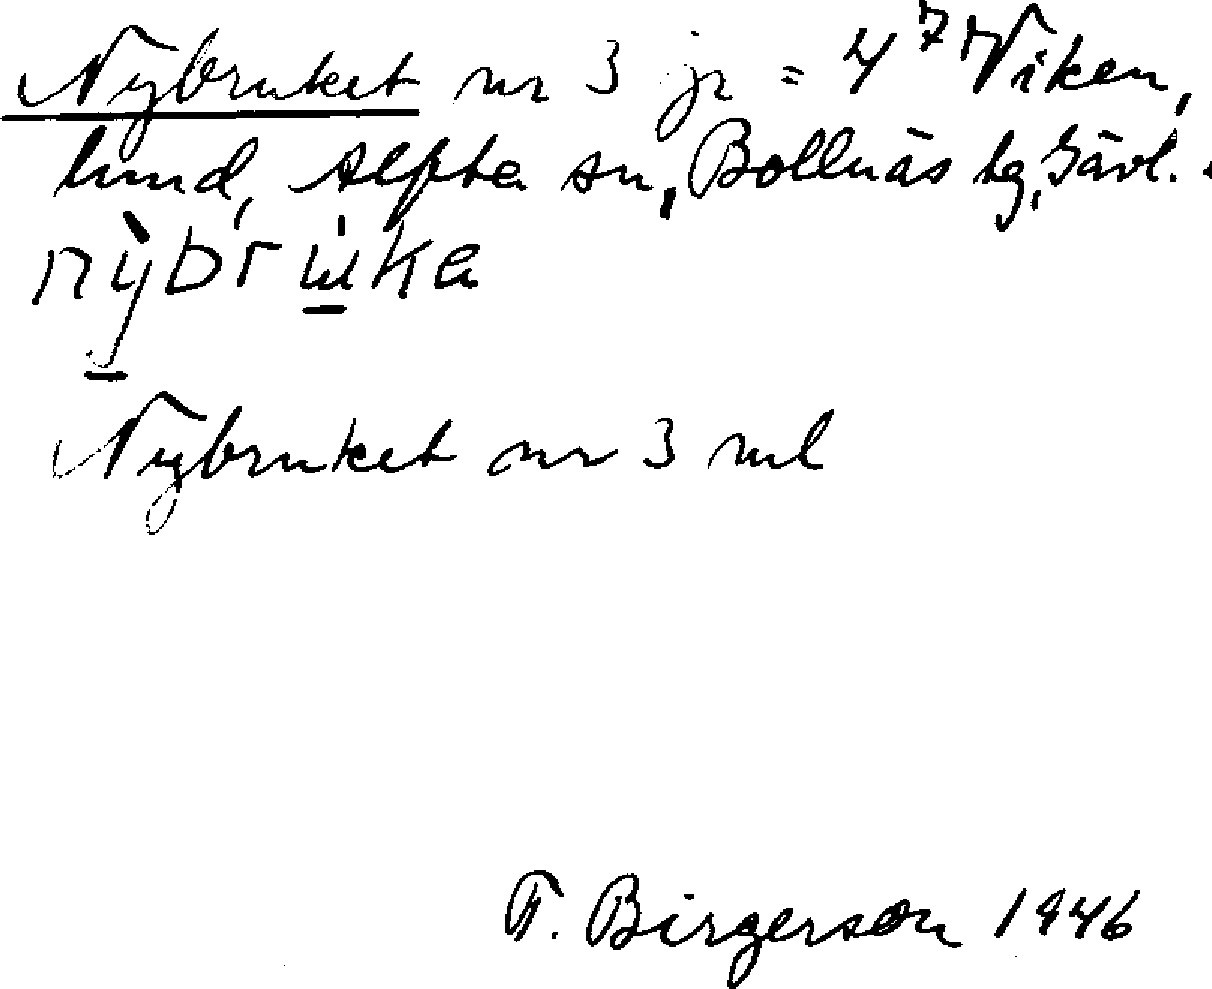 Nybruket nr 3 jr = 4⁷ Viken,
lund, Alfta sn, Bollnäs tg, Gävl.
nybruka
Nybruket nr 3 ml
T. Birgerson 1946